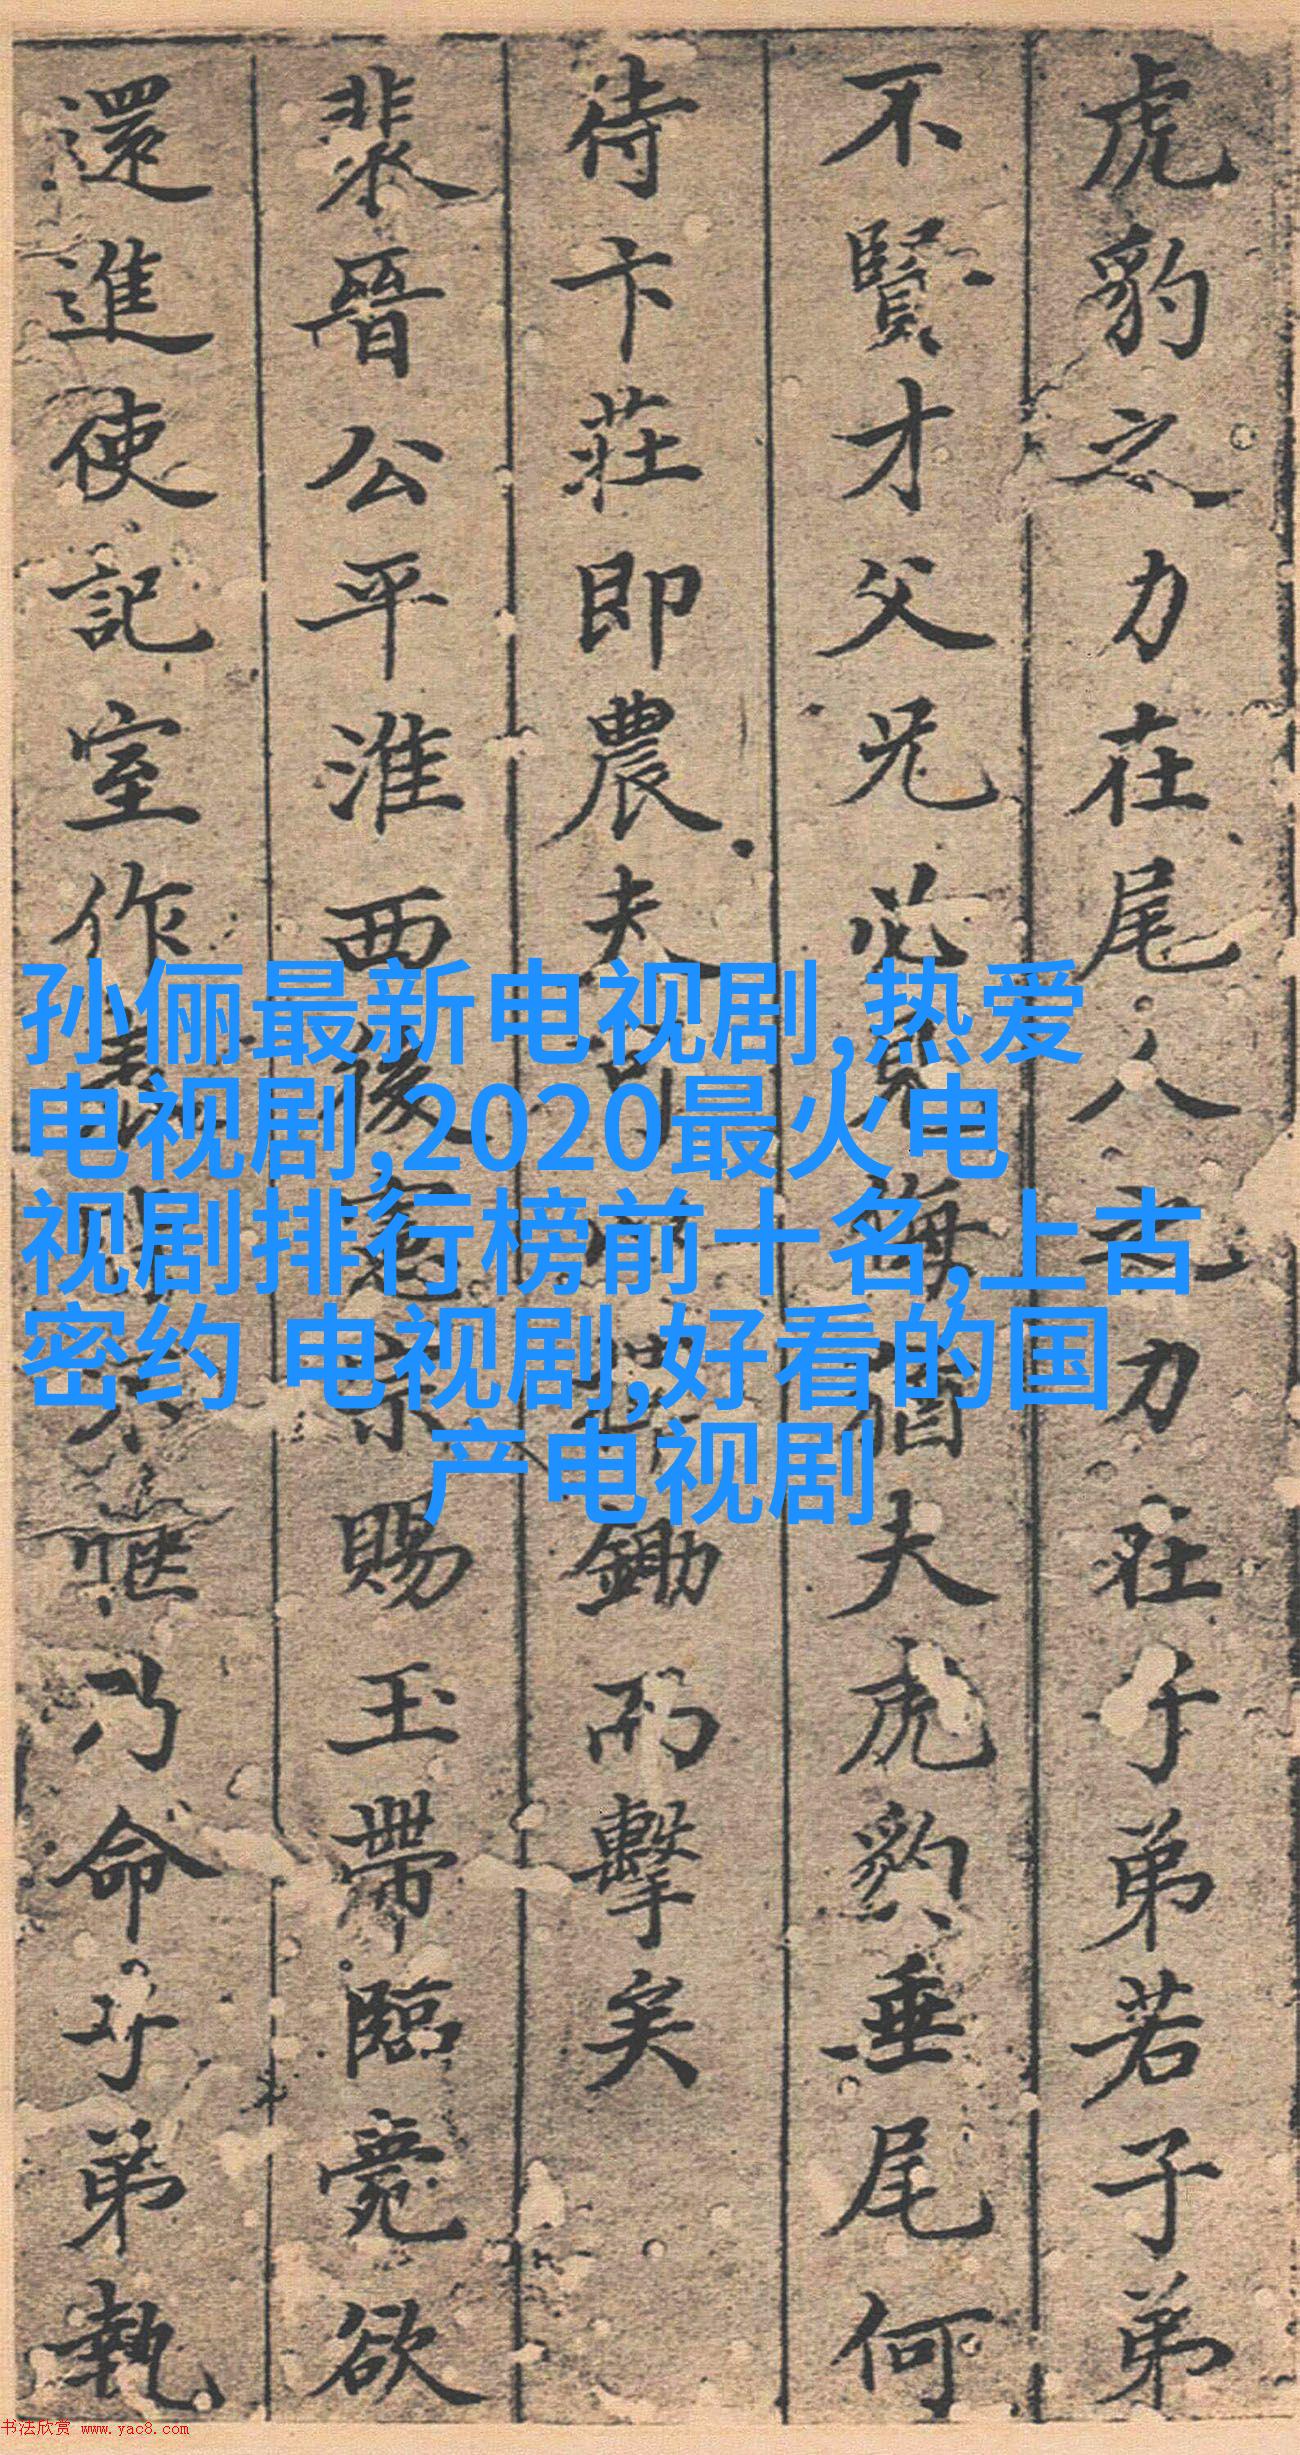 虎豹之力在尾人之力在子弟若子弟
不賢才父兄必見侮猶夫虎豹垂尾何
待卞莊即農夫可鋤而擊矣
裴晉公平淮西後憲宗賜玉帶臨薨欲
還進使記室作表皆不愜乃命子弟執
孙俪最新电视剧,热爱
电视剧,2020最火电
视剧排行榜前十名,上古
密约 电视剧,好看的国
产电视剧
书法欣赏 www.yac8.com